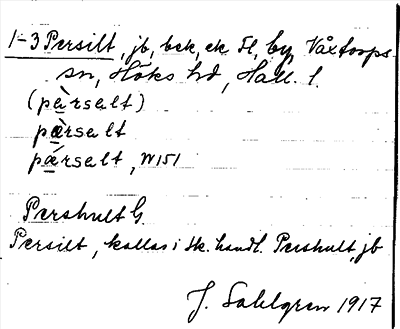 1-3 Persilt, jb, bek, ek Fl, by, Våxtorps
sn, Höks hd, Hall. l.
(pàrselt)
pæ̀rselt
pǽrselt, W151
Pershult G.
Persilt, kallas i sk. handl. Pershult, jb
J. Sahlgren 1917